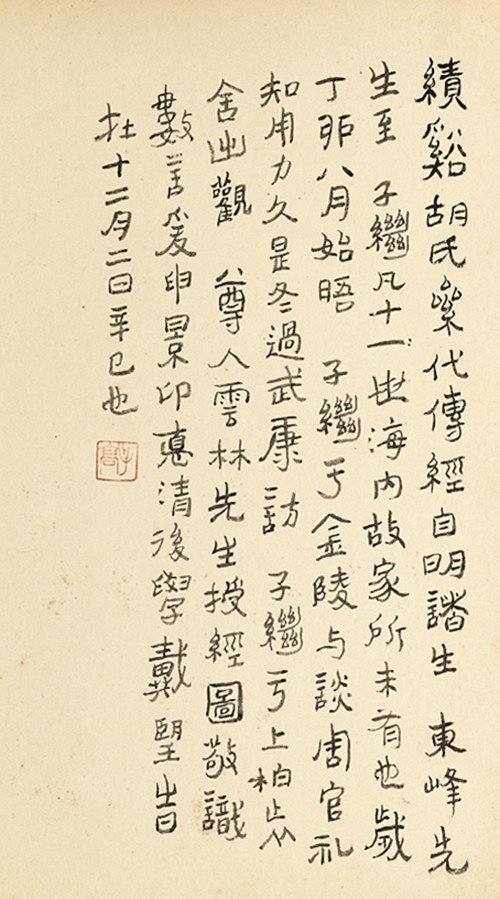 績谿胡氏絫代傳經自明諸生 東峰先
生至 子繼凡十一世海内故家所未有也歲
丁卯八月始晤 子繼于金陵与談周官礼
知用力久是冬過武康訪 子繼于上柏
舍出觀 尊人雲林先生授經圖敬識
數言爰申景卬悳清後學戴望旹
扗十二月二日辛巳也
子高